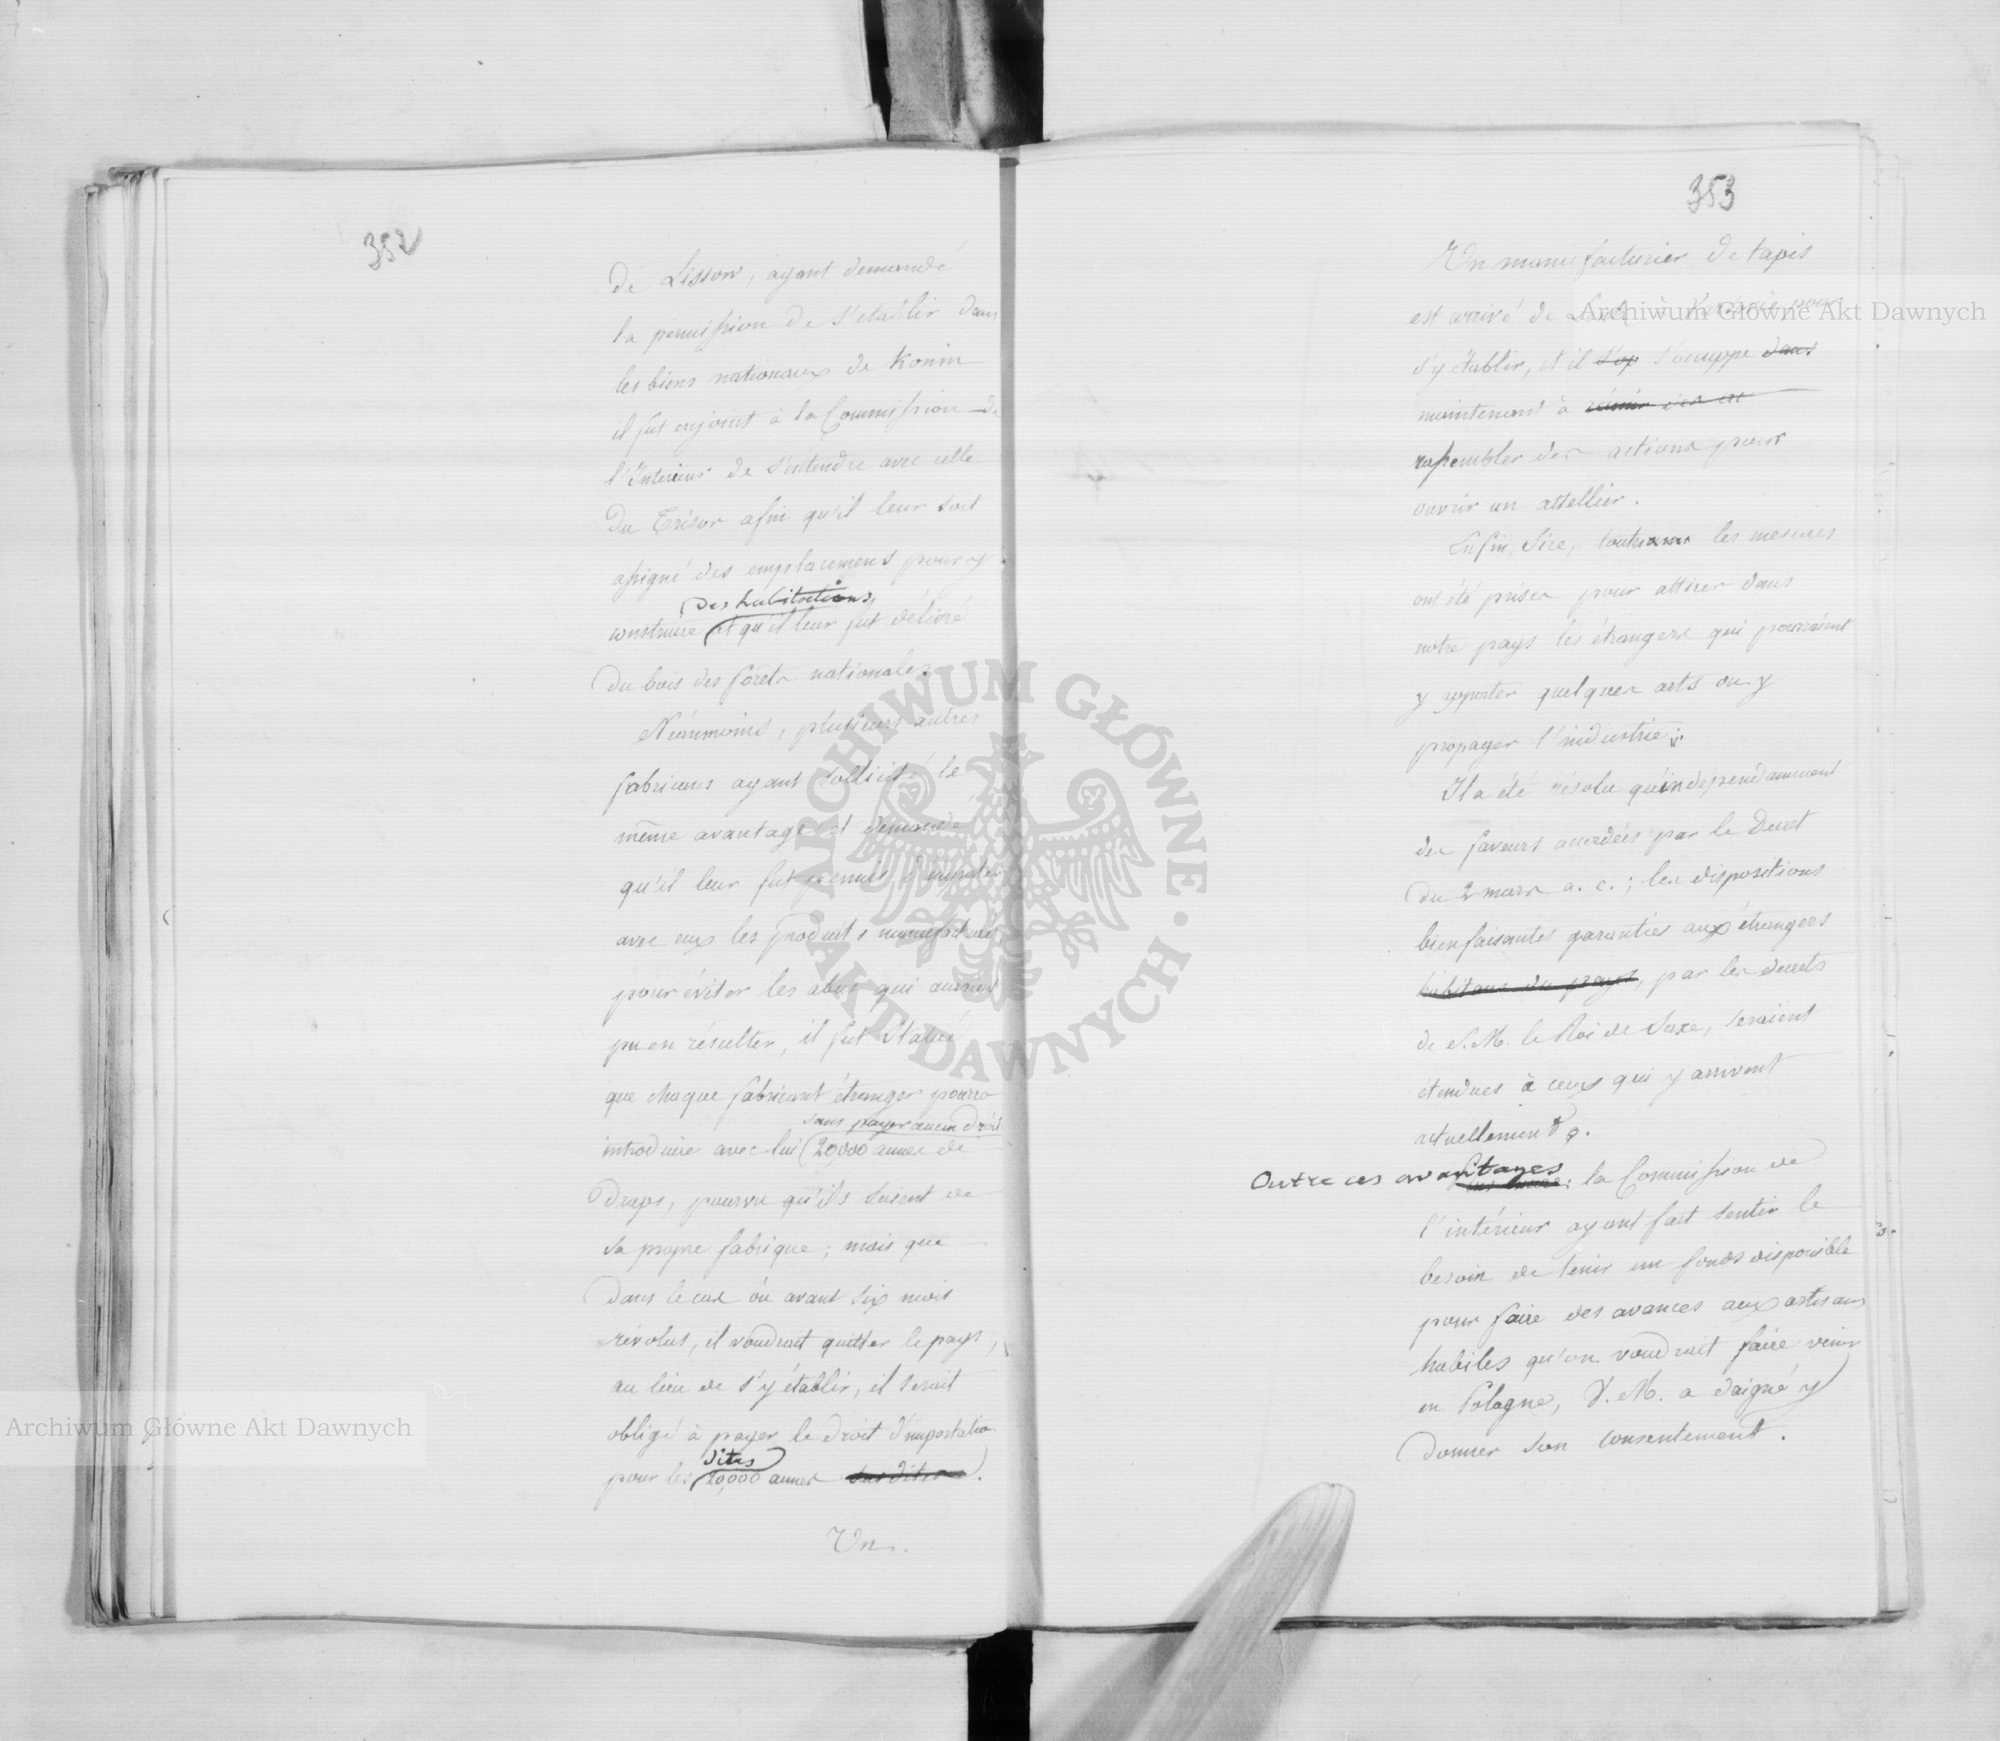 352
de Lissow, ayant demandé
la permission de s'établir dans
les biens nationaux de Konin
il fut enjoint à la Commission de
l'Interieur de s'entendre avec celle
du Trésor afin qu'il leur soit
assigné des emplacemens pour y
des habitations
construire et qu'il leur fut délivré
du bois des forêts nationales.
Néanmoins, plusieurs autres
fabricans ayant sollicité le
même avantage et demandé
qu'il leur fut permis d'importer
avec eux les produits manufacturés
pour éviter les abus qui auraient
pu en résulter, il fut statué
que chaque fabricant étranger pourra
sans payer aucun droit
introduire avec lui 20,000 aunes de
draps, pourvu qu'ils soient de
sa propre fabrique; mais que
dans le cas où avant six mois
révolus, il voudrait quitter le pays,
au lieu de s'y établir, il serait
obligé à payer le droit d'importatio
dites
pour les 20,000 aunes susdites.
Un.
353
Un manufacturier de tapis
est arrivé de à pour
s'y établir, et il s'occuppe dans
maintenant à
rassembler des actions pour
ouvrir un attellier.
Enfin, Sire, toutes les mesures
ont été prises pour attirer dans
notre pays les étrangers qui pourraient
y apporter quelques arts ou y
propager l'industrie.
Il a été résolu qu'indépendamment
des faveurs accordées par le Decret
du 2 mars a. c.; les dispositions
bienfaisantes garanties aux étrangers
habitans du pays, par les decrets
de S. M. le Roi de Saxe, seraient
étendues à ceux qui y arrivent
actuellement.
Outre ces avantages; la Commission de
l'intérieur ayant fait sentir le
besoin de tenir un fonds disponible
pour faire des avances aux artisans
habiles qu'on voudrait faire venir
en Pologne, V. M. a daigné y
donner son consentement.
Archiwum Główne Akt Dawnych
Archiwum Główne Akt Dawnych
ARCHIWUM GŁÓWNE
AKT DAWNYCH